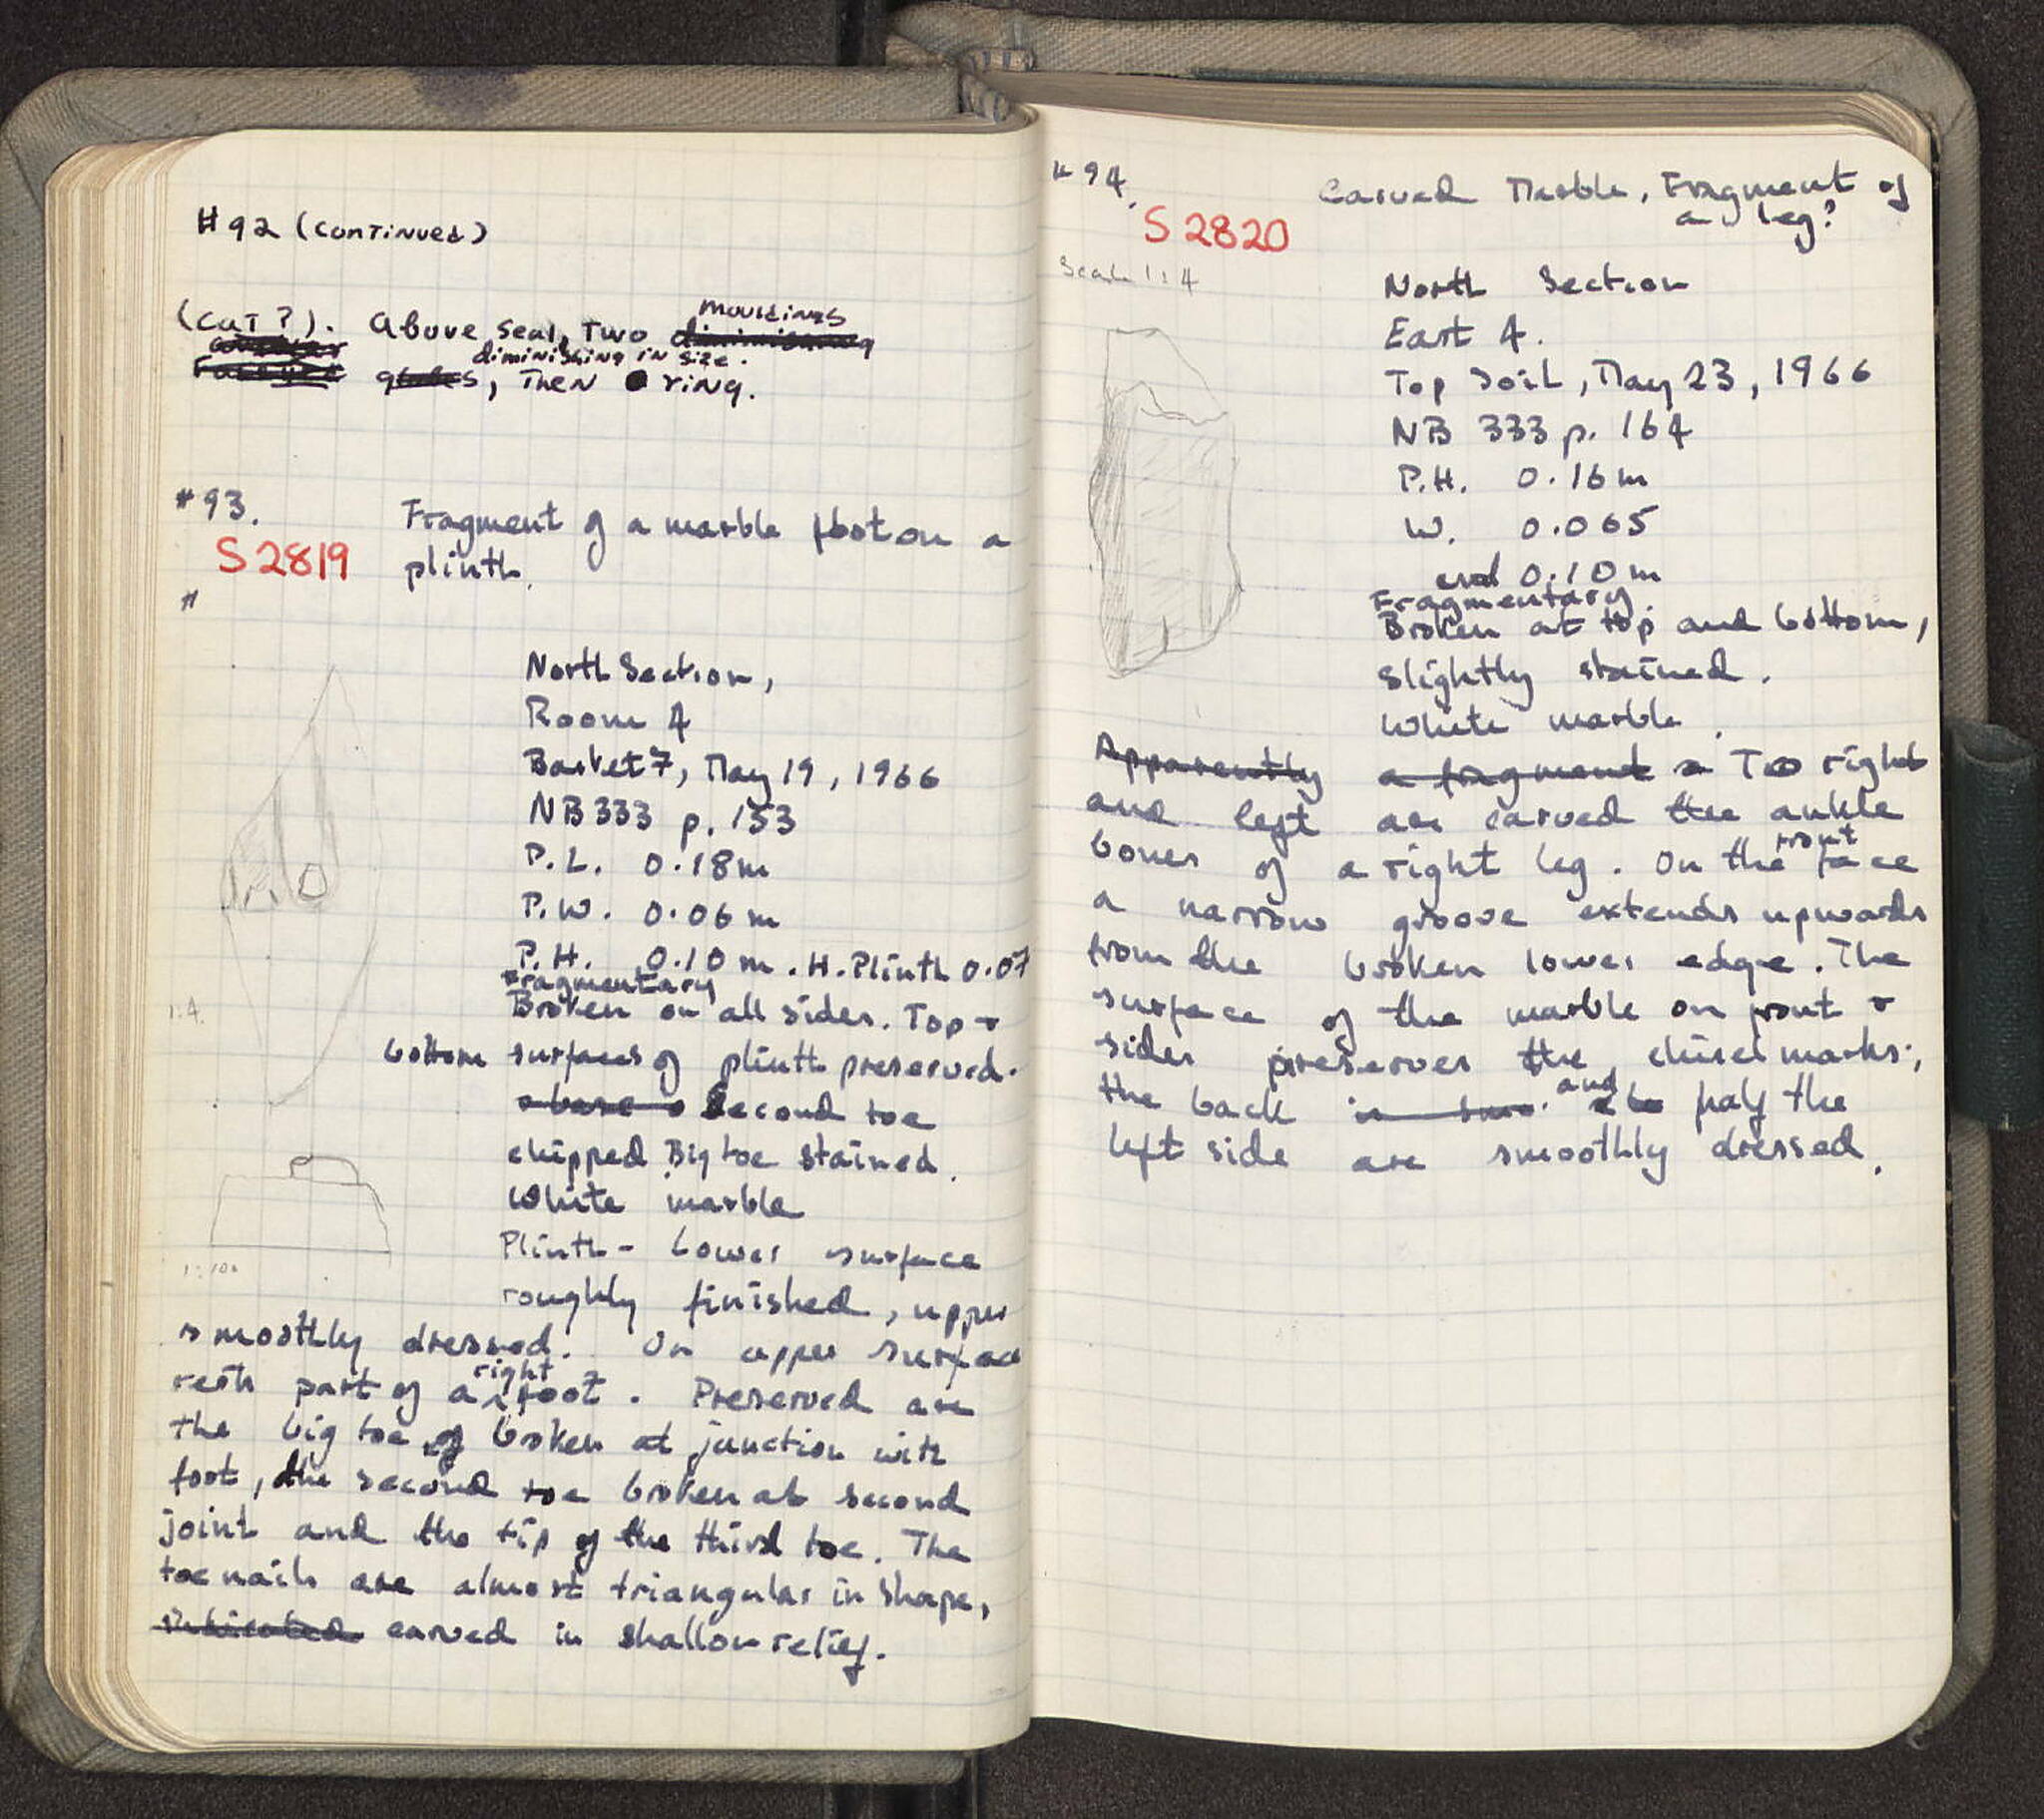 # 92 (continued)
(cat?). Above seal, two mouldings
diminishing in size.
globes, Then ring.
# 93.
S 2819
Fragment of a marble foot on a
plinth.
"
North Section,
Room 4
Basket 7, May 19, 1966
NB 333 p. 153
P.L. 0.18m
P.W. 0.06m
P.H. 0.10m. H. Plinth 0.07
Fragmentary
Broken on all sides. Top +
bottom surfaces of plinth preserved.
Second toe
chipped Big toe stained.
White marble
1:4
Plinth - Lower surface
roughly finished, upper
smoothly dressed. On upper surface
rests part of a right foot. Preserved are
the big toe broken at junction with
foot, the second toe broken at second
joint and the tip of the third toe. The
toenails are almost triangular in shape,
carved in shallow relief.
# 94.
S 2820
Scale 1:4
Carved Marble, Fragment of
a leg?
North Section
East 4.
Top Soil, May 23, 1966
NB 333 p. 164
P.H. 0.16m
W. 0.065
and 0.10m
Fragmentary.
Broken at top and bottom,
slightly stained.
White marble.
Apparently a fragment a To right
and left are carved the ankle
bones of a right leg. On the front face
a narrow groove extends upwards
from the broken lower edge. The
surface of the marble on front +
sides preserves the chisel marks;
the back and half the
left side are smoothly dressed.